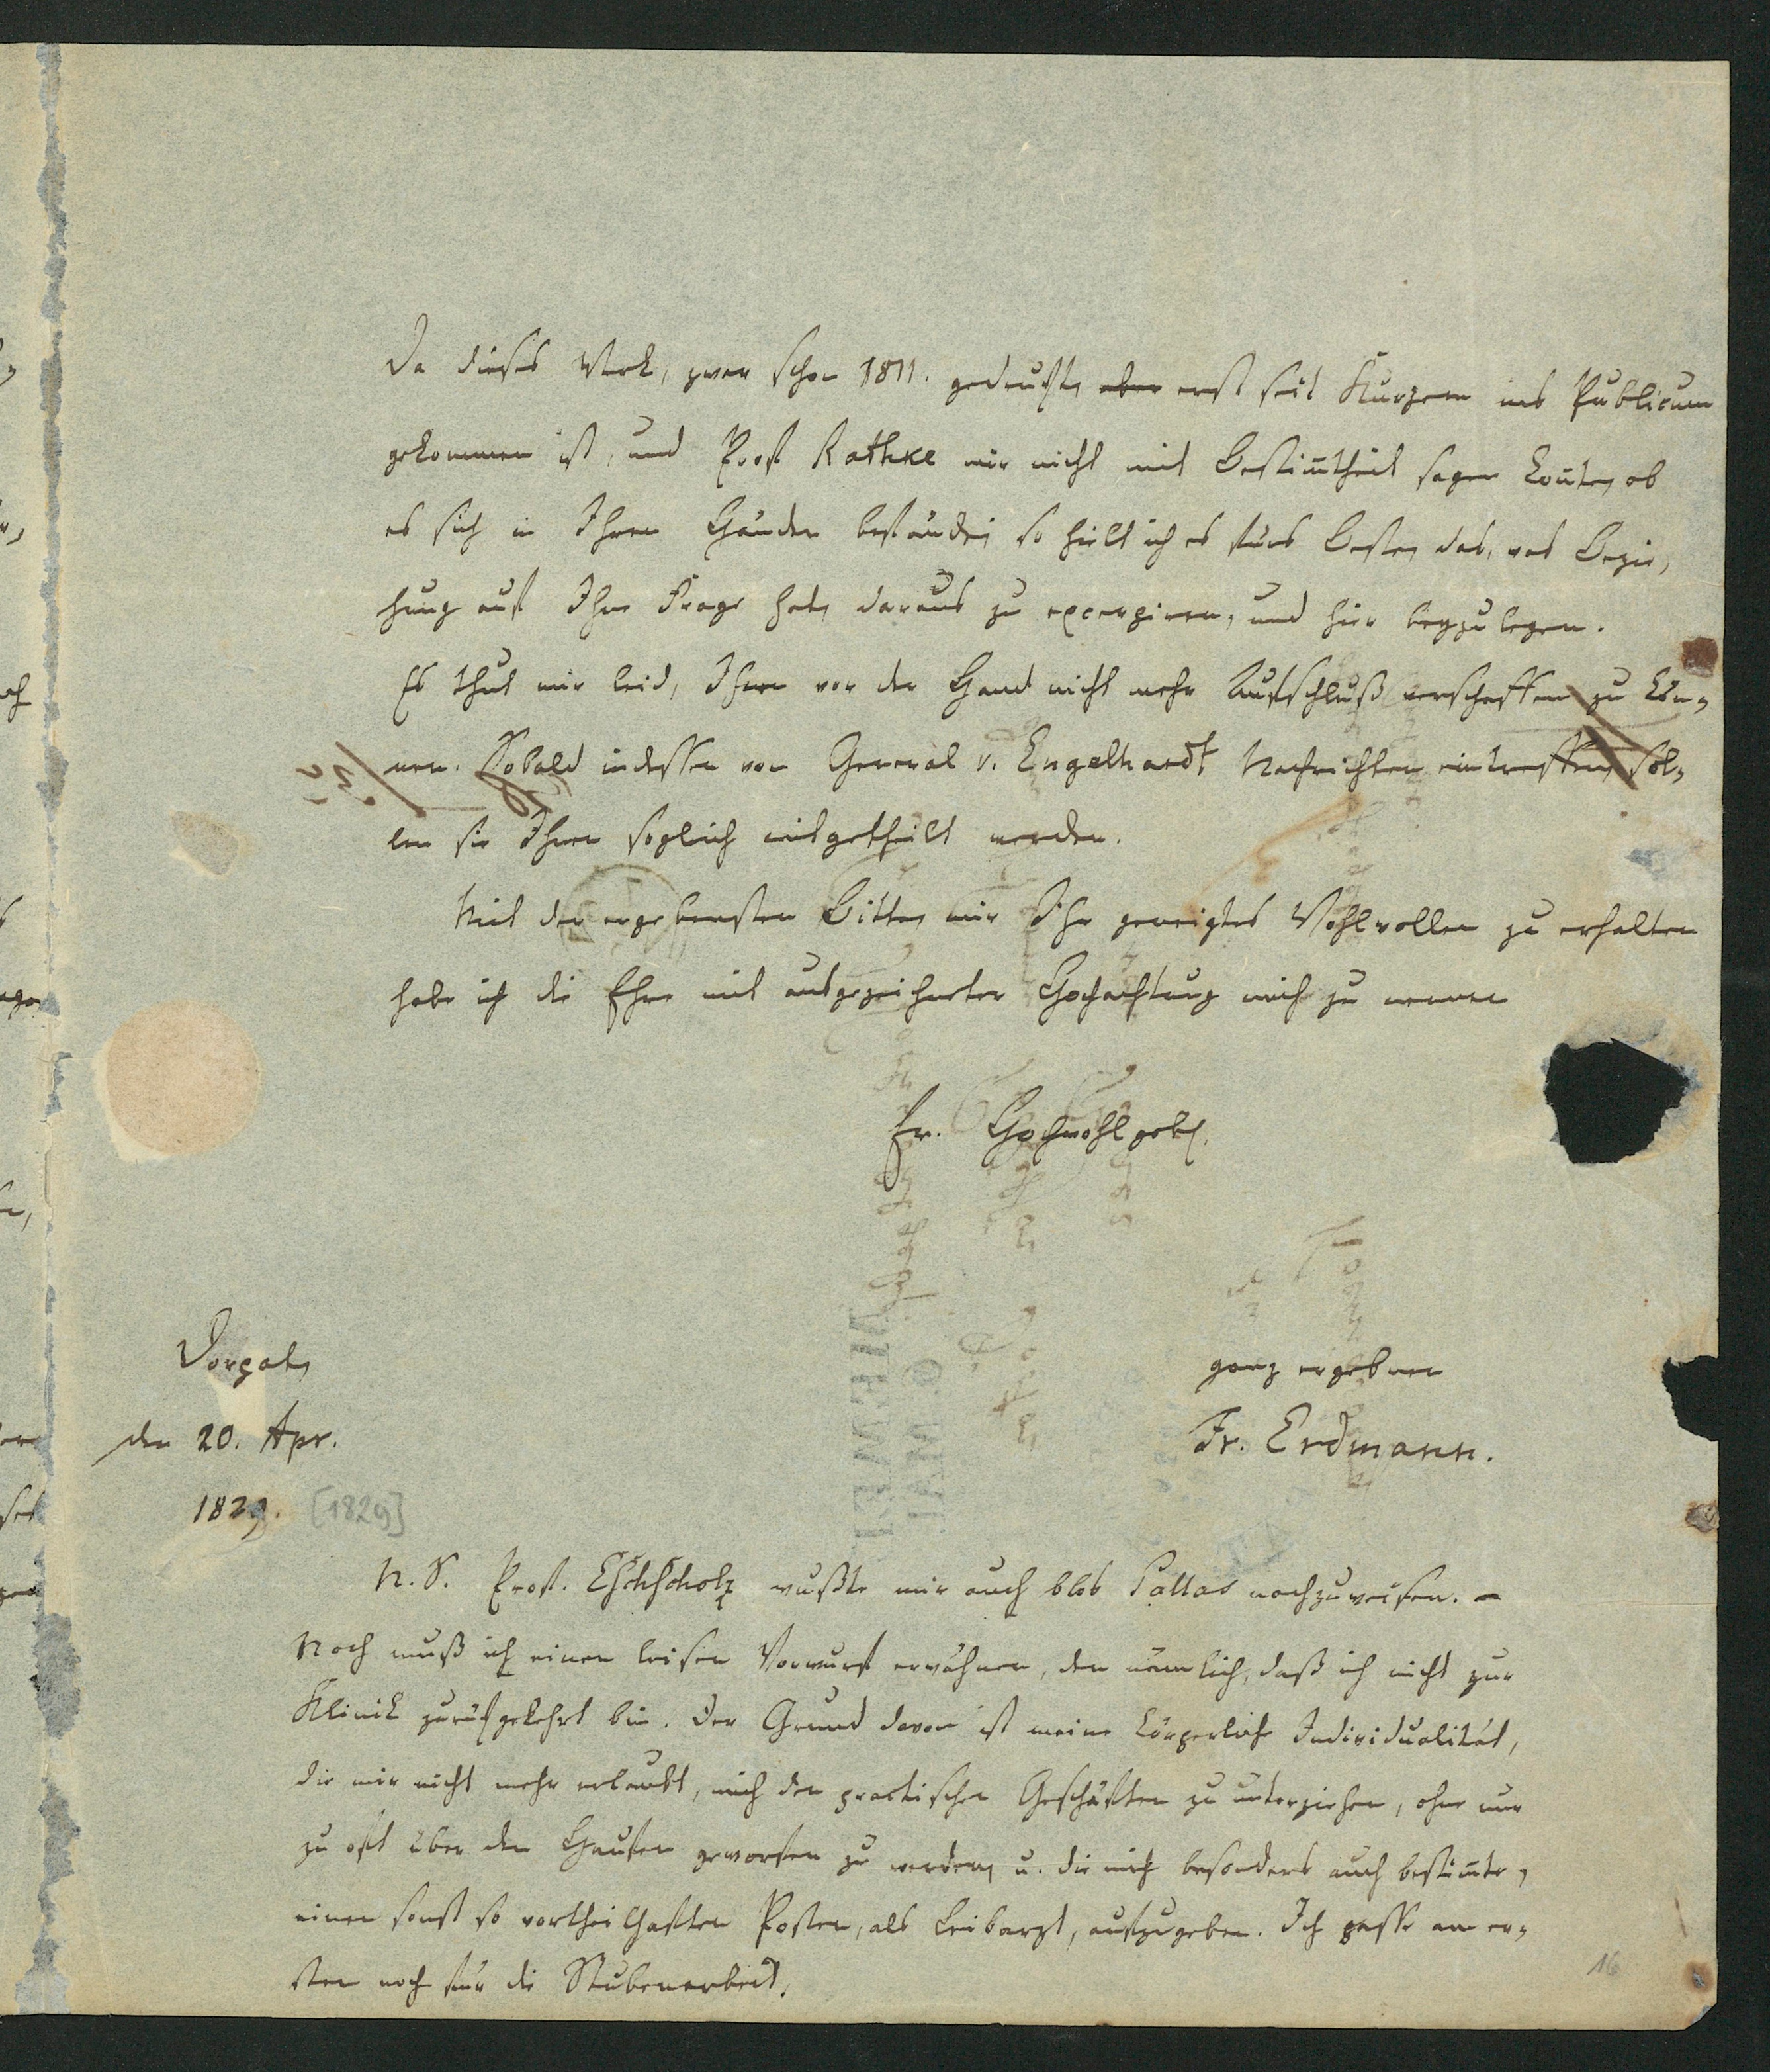 Da dieses Werk, zwar schon 1811. gedruckt, aber erst seit Kurzem ins Publicum
gekommen ist, und Prof Rathke mir nicht mit Bestim̄theit sagen kon̄te, ob
es sich in Ihren Händen befände, so hielt ich es fürs Beste, das, was Bezie,
hung auf Ihre Frage hat, daraus zu excerpiren, und hier beyzulegen.
Es thut mir leid, Ihnen vor der Hand nicht mehr Aufschluß verschaffen zu kön,
nen. Sobald indessen von General v. Engelhardt Nachrichten eintreffen, sol,
len sie Ihnen sogleich mitgetheilt werden.
Mit der ergebensten Bitte, mir Ihr geneigtes Wohlwollen zu erhalten
habe ich die Ehre mit ausgezeichneter Hochachtung mich zu nennen
Ew. Hochwohlgeb.
Dorpat,
den 20. Apr.
1829. [1829]
ganz ergebener
Fr. Erdmann.
N. S. Prof. Eschscholz wußte mir auch blos Pallas nachzuweisen. –
Noch muß ich einen leisen Vorwurf erwähnen, den nämlich, daß ich nicht zur
Klinik zurückgekehrt bin. Der Grund davon ist meine körperliche Individualität,
die mir nicht mehr erlaubt, mich den practischen Geschäften zu unterziehen, ohne nur
zu oft über den Haufen geworfen zu werden, u. die mich besonders auch bestim̄te,
einen sonst so vortheilhaften Posten, als Leibarzt, aufzugeben. Ich passe am er,
sten noch für die Stubenarbeit.
16